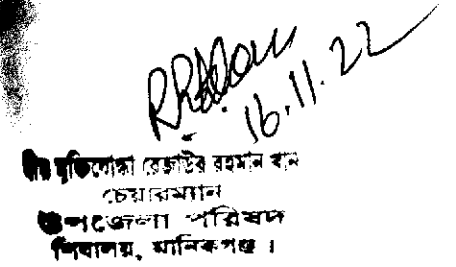 16.11.22
বীর মুক্তিযোদ্ধা রেজাউর রহমান খান
চেয়ারম্যান
উপজেলা পরিষদ
শিবালয়, মানিকগঞ্জ ।